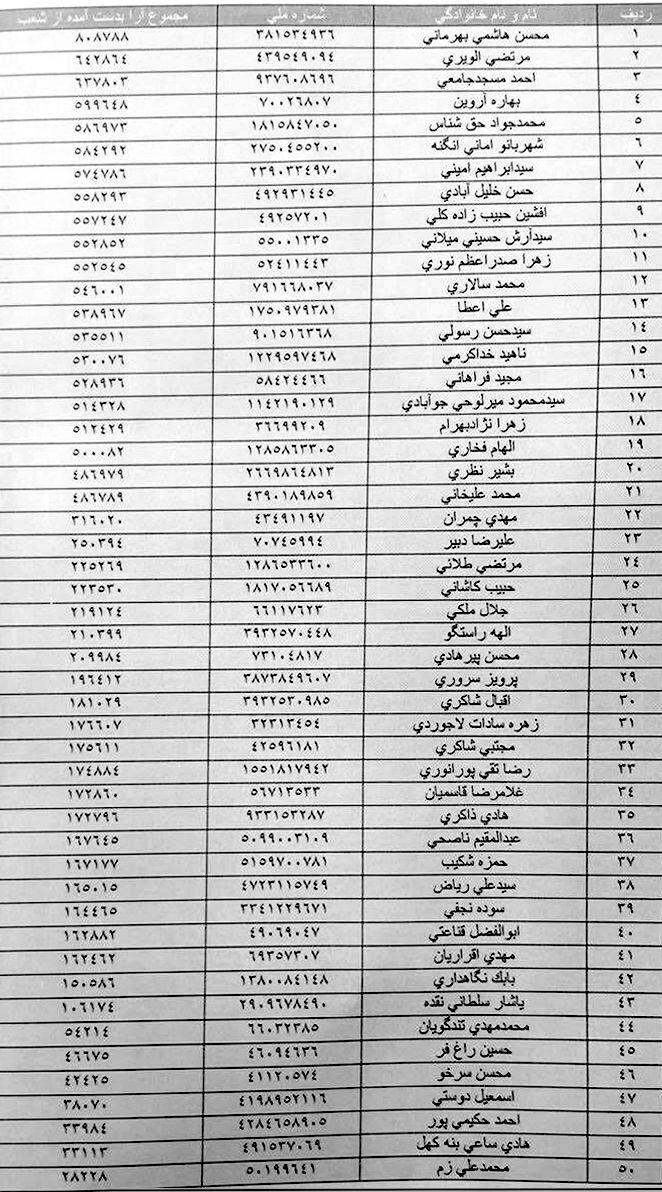 ردیف نام و نام خانوادگي شماره ملي مجموع آرا بدست آمده از شعب
١ محسن هاشمي بهرماني ٣٨١٥٣٤٩٣٦ ٨٠٨٧٨٨
٢ مرتضي الويري ٤٣٩٥٤٩٠٩٤ ٦٤٢٨٦٤
٣ احمد مسجدجامعي ٩٣٧٦٠٨٦٩٦ ٦٣٧٨٠٣
٤ بهاره آروين ٧٠٠٢٦٨٠٧ ٥٩٩٦٤٨
٥ محمدجواد حق شناس ١٨١٥٨٤٧٠٥٠ ٥٨٦٩٧٣
٦ شهربانو اماني انگنه ٢٧٥٠٤٥٥٢٠٠ ٥٨٤٢٩٢
٧ سيدابراهيم اميني ٢٣٩٠٣٣٤٩٧٠ ٥٧٤٧٨٦
٨ حسن خليل آبادي ٤٩٢٩٣١٤٤٥ ٥٥٨٢٩٣
٩ افشين حبيب زاده كلي ٤٩٢٥٧٢٠١ ٥٥٧٢٤٧
١٠ سيدآرش حسيني ميلاني ٥٥٠٠١٣٣٥ ٥٥٢٨٥٢
١١ زهرا صدراعظم نوري ٥٢٤١١٤٤٣ ٥٥٢٥٤٥
١٢ محمد سالاري ٧٩١٦٦٨٠٣٧ ٥٤٦٠٠١
١٣ علي اعطا ١٧٥٠٩٧٩٣٨١ ٥٣٨٩٦٧
١٤ سيدحسن رسولي ٩٠١٥١٦٣٦٨ ٥٣٥٥١١
١٥ ناهيد خداكرمي ١٢٢٩٥٩٧٤٦٨ ٥٣٠٠٧٦
١٦ مجيد فراهاني ٥٨٤٢٤٤٦٦ ٥٢٨٩٣٦
١٧ سيدمحمود ميرلوحي جوآبادي ١١٤٢١٩٠١٢٩ ٥١٤٣٢٨
١٨ زهرا نژادبهرام ٣٦٦٩٩٢٠٩ ٥١٢٤٢٩
١٩ الهام فخاري ١٢٨٥٨٦٣٣٠٥ ٥٠٠٠٨٢
٢٠ بشير نظري ٢٦٦٩٨٦٤٨١٣ ٤٨٦٩٧٩
٢١ محمد عليخاني ٤٣٩٠١٨٩٨٥٩ ٤٨٦٧٨٩
٢٢ مهدي چمران ٤٣٤٩١١٩٧ ٣١٦٠٢٠
٢٣ عليرضا دبير ٧٠٧٤٥٩٩٤ ٢٥٠٣٩٤
٢٤ مرتضي طلائي ١٢٨٦٥٣٣٦٠٠ ٢٢٥٢٦٩
٢٥ حبيب كاشاني ١٨١٧٠٥٦٦٨٩ ٢٢٣٥٣٠
٢٦ جلال ملكي ٦٦١١٧٦٢٣ ٢١٩١٢٤
٢٧ الهه راستگو ٣٩٣٢٥٧٠٤٤٨ ٢١٠٣٩٩
٢٨ محسن پيرهادي ٧٣١٠٤٨١٧ ٢٠٩٩٨٤
٢٩ پرويز سروري ٣٨٧٣٨٤٩٦٠٧ ١٩٦٤١٢
٣٠ اقبال شاكري ٣٩٣٢٥٣٠٩٨٥ ١٨١٠٢٩
٣١ زهره سادات لاجوردي ٣٢٣١٣٤٥٤ ١٧٦٦٠٧
٣٢ مجتبي شاكري ٤٢٥٩٦١٨١ ١٧٥٦١١
٣٣ رضا تقي پورانوري ١٥٥١٨١٧٩٤٢ ١٧٤٨٨٤
٣٤ غلامرضا قاسميان ٥٦٧١٣٥٣٣ ١٧٢٨٦٠
٣٥ هادي ذاكري ٩٣٣١٥٣٢٨٧ ١٧٢٧٩٦
٣٦ عبدالمقيم ناصحي ٥٠٩٩٠٠٣١٠٩ ١٦٧٦٤٥
٣٧ حمزه شكيب ٥١٥٩٧٠٠٧٨١ ١٦٧١٧٧
٣٨ سيدعلي رياض ٤٧٢٣١١٥٧٤٩ ١٦٥٠١٥
٣٩ سوده نجفي ٣٣٤١٢٢٩٦٧١ ١٦٤٤٦٥
٤٠ ابوالفضل قناعتي ٤٩٠٦٩٠٤٧ ١٦٢٨٨٢
٤١ مهدي اقراريان ٦٩٣٥٧٣٠٧ ١٦٢٤٦٢
٤٢ بابك نگاهداري ١٣٨٠٠٨٤١٤٨ ١٥٠٥٨٦
٤٣ ياشار سلطاني نقده ٢٩٠٩٦٧٨٤٩٠ ١٠٦١٧٤
٤٤ محمدمهدي تندگويان ٦٦٠٣٢٣٨٥ ٥٤٢١٤
٤٥ حسين راغ فر ٤٦٠٩٤٦٣٦ ٤٦٦٧٥
٤٦ محسن سرخو ٤١١٢٠٥٧٤ ٤٢٤٢٥
٤٧ اسمعيل دوستي ٤١٩٨٩٥٢١١٦ ٣٨٠٧٠
٤٨ احمد حكيمي پور ٤٢٨٤٦٥٨٩٠٥ ٣٣٩٨٤
٤٩ هادي ساعي بنه كهل ٤٩١٥٣٧٠٦٩ ٣٣١١٣
٥٠ محمدعلي زم ٥٠١٩٩٦٤١ ٢٨٢٢٨